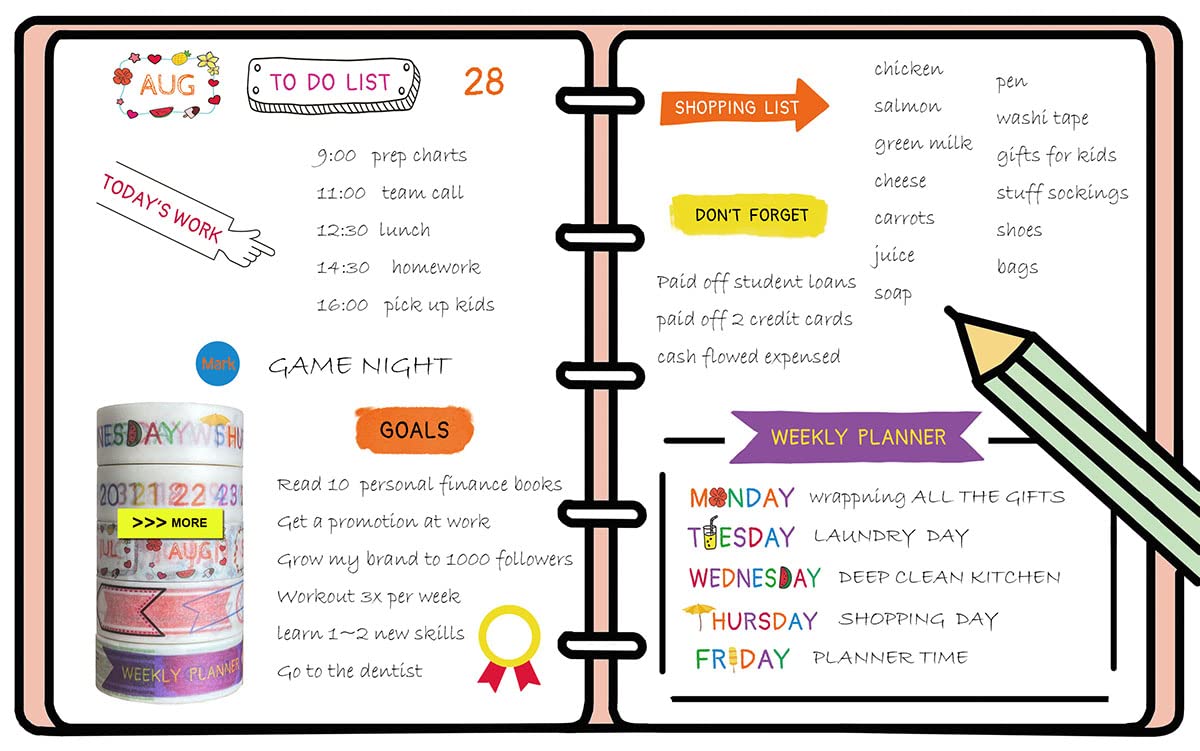 AUG
TO DO LIST
28
TODAY'S WORK
9:00 prep charts
11:00 team call
12:30 lunch
14:30 homework
16:00 pick up kids
Mark
GAME NIGHT
NESDAY SHU
20 31 21 22 23
>>> MORE
JUL AUG
WEEKLY PLANNER
GOALS
Read 10 personal finance books
Get a promotion at work
Grow my brand to 1000 followers
Workout 3x per week
learn 1~2 new skills
Go to the dentist
SHOPPING LIST
chicken
salmon
green milk
cheese
carrots
juice
soap
pen
washi tape
gifts for kids
stuff sockings
shoes
bags
DON'T FORGET
Paid off student loans
paid off 2 credit cards
cash flowed expensed
WEEKLY PLANNER
MONDAY wrappning ALL THE GIFTS
TUESDAY LAUNDRY DAY
WEDNESDAY DEEP CLEAN KITCHEN
THURSDAY SHOPPING DAY
FRIDAY PLANNER TIME